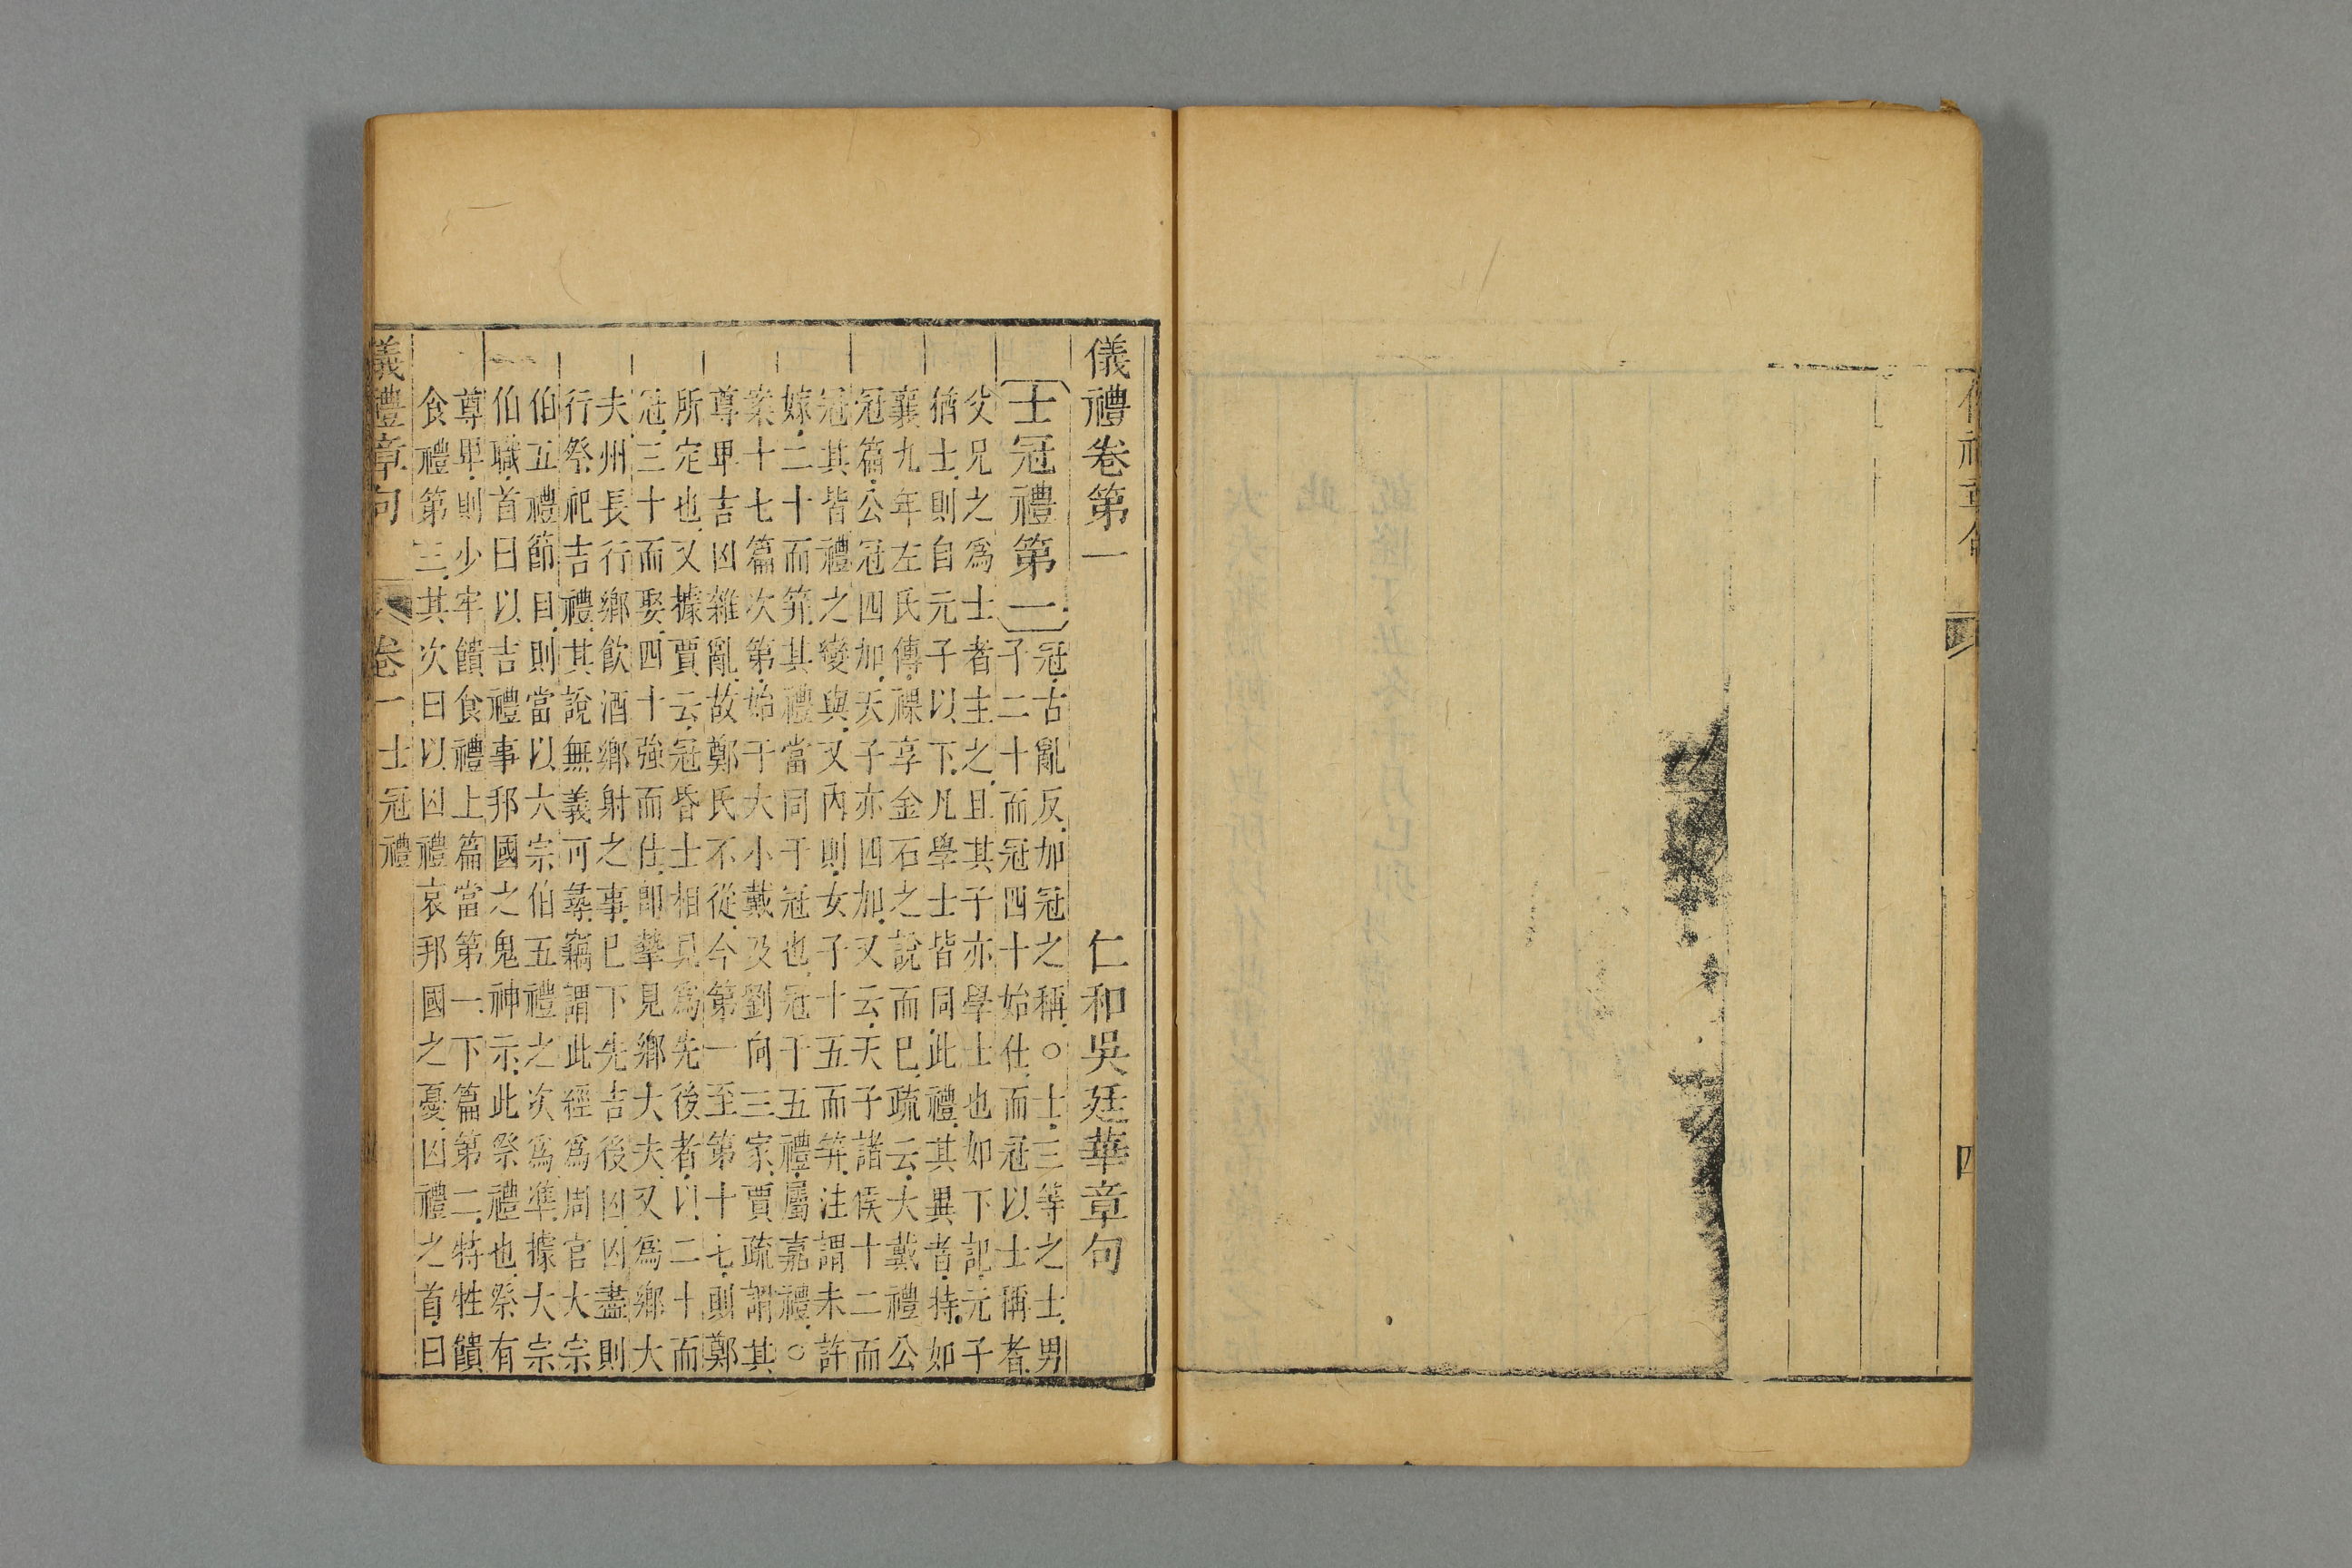 儀禮章句
四
儀禮卷第一 仁和吳廷華章句
士冠禮第一
冠古亂反加冠之稱○士三等之士男
子二十而冠四十始仕而冠以士稱者
父兄之爲士者主之且其子亦學士也如下記元子
猶士則自元子以下凡學士皆同此禮其異者特如
襄九年左氏傳祼享金石之說而已疏云大戴禮公
冠篇公冠四加天子亦四加又云天子諸侯十二而
冠其皆禮之變與又內則女子十五而笄注謂未許
嫁二十而笄其禮當同于冠也冠于五禮屬嘉禮○
案十七篇次第始于大小戴及劉向三家賈疏謂其
尊卑吉凶雜亂故鄭氏不從今第一至第十七則鄭
所定也又據賈云冠昏士相見爲先後者以二十而
冠三十而娶四十強而仕卽摯見鄉大夫又爲鄉大
夫州長行鄉飲酒鄉射之事已下先吉後凶凶盡則
行祭祀吉禮其說無義可尋竊謂此經爲周官大宗
伯五禮節目則當以大宗伯五禮之次爲準據大宗
伯職首曰以吉禮事邦國之鬼神示此祭禮也祭有
尊卑則少牢饋食禮上篇當第一下篇第二特牲饋
食禮第三其次曰以凶禮哀邦國之憂凶禮之首曰
儀禮章句 卷一 士冠禮